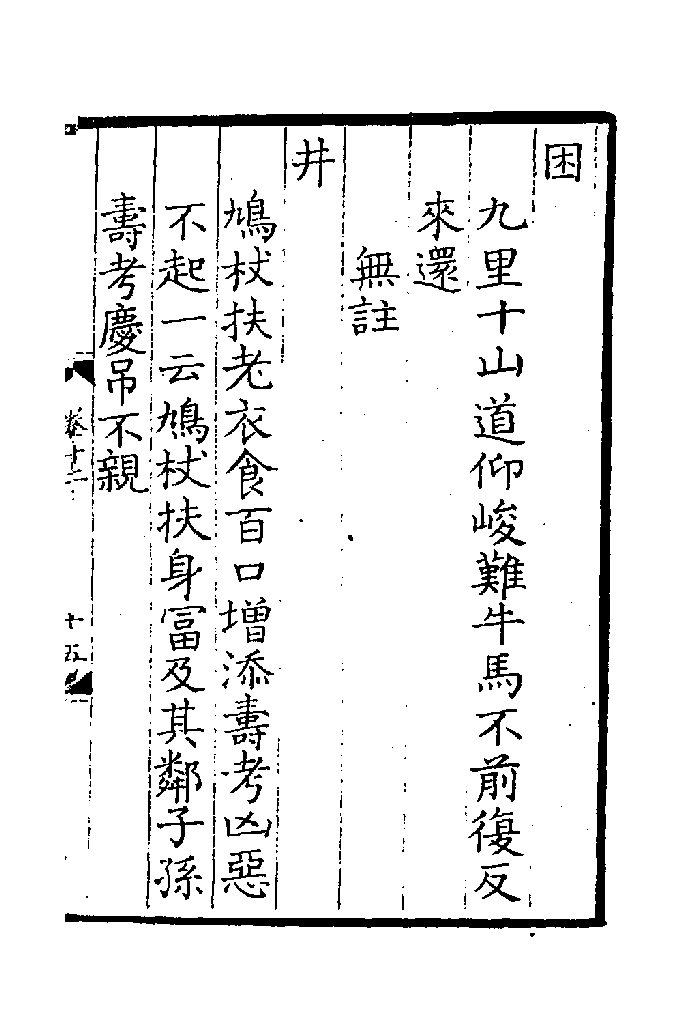 困
九里十山道仰峻難牛馬不前復反
來還
無註
井
鳩杖扶老衣食百口增添壽考凶惡
不起一云鳩杖扶身富及其鄰子孫
壽考慶吊不親
卷十二
十五